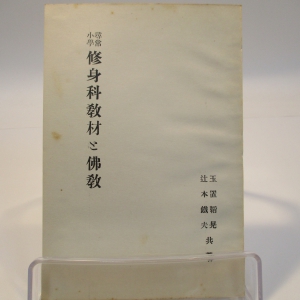 尋常
小學
修身科教材と佛教
玉置韜晃
辻本鐵夫
共